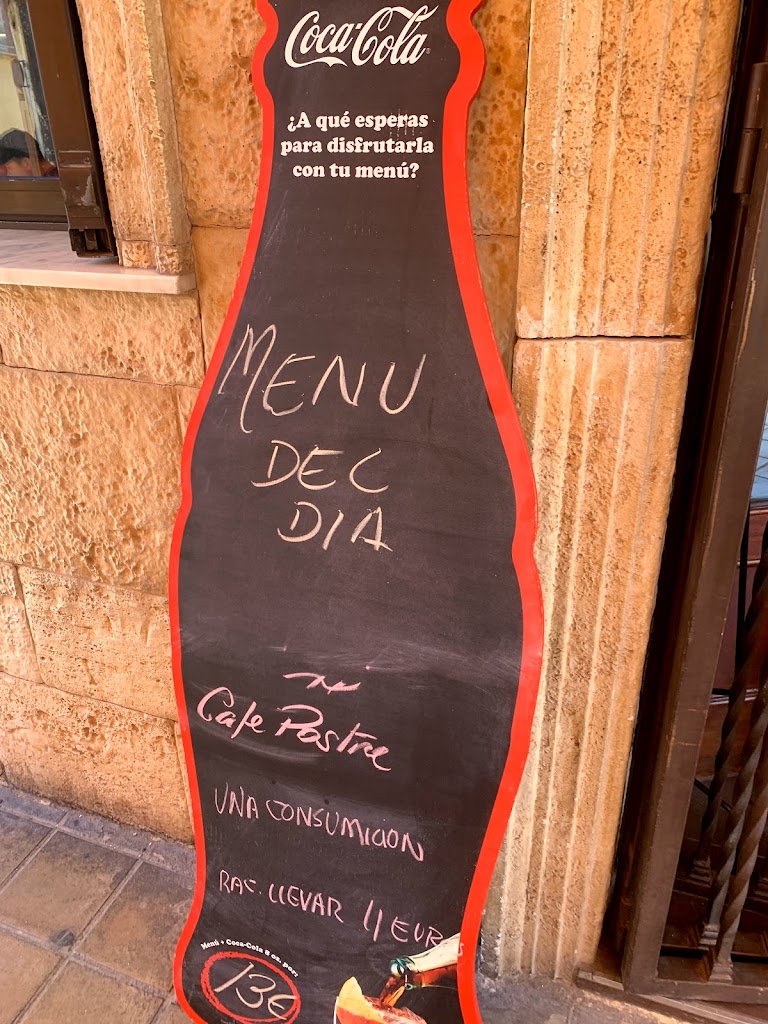 Coca-Cola
¿A qué esperas
para disfrutarla
con tu menú?
MENU
DEL
DIA
Cafe Postre
UNA CONSUMICION
RAC. LLEVAR 4 EUROS
Menú + Coca-Cola 8 oz. por:
13€